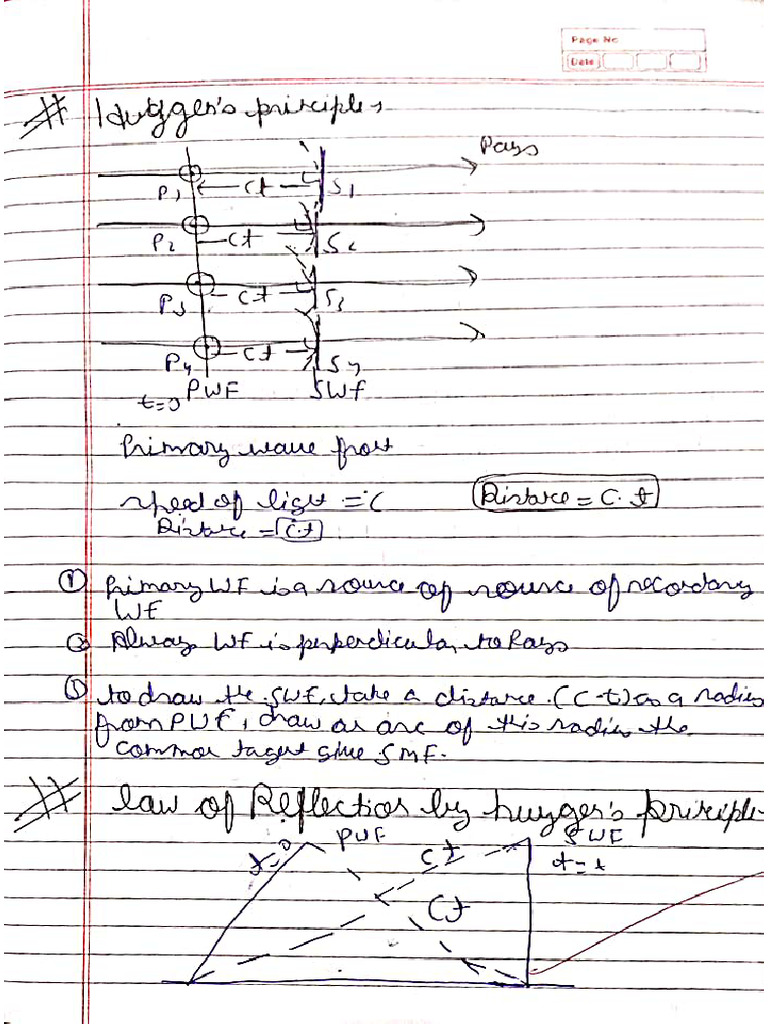 Page No
Date
# Huygen's principle,
Rays
P1 ct S1
P2 ct S2
P3 ct S3
P4 ct S4
t=0 PWF SWF
Primary wave front
speed of light = C
Distance = C.t
Distance = C.t
① Primary WF is a source of source of secondary
WF
② Always WF is perpendicular to Rays
③ to draw the SWF, take a distance (C-t) as a radius
from PWF, draw an arc of this radius the
common tangent give SWF.
# law of Reflection by huygen's principle
t=0 PWF ct SWF
t=t
Ct